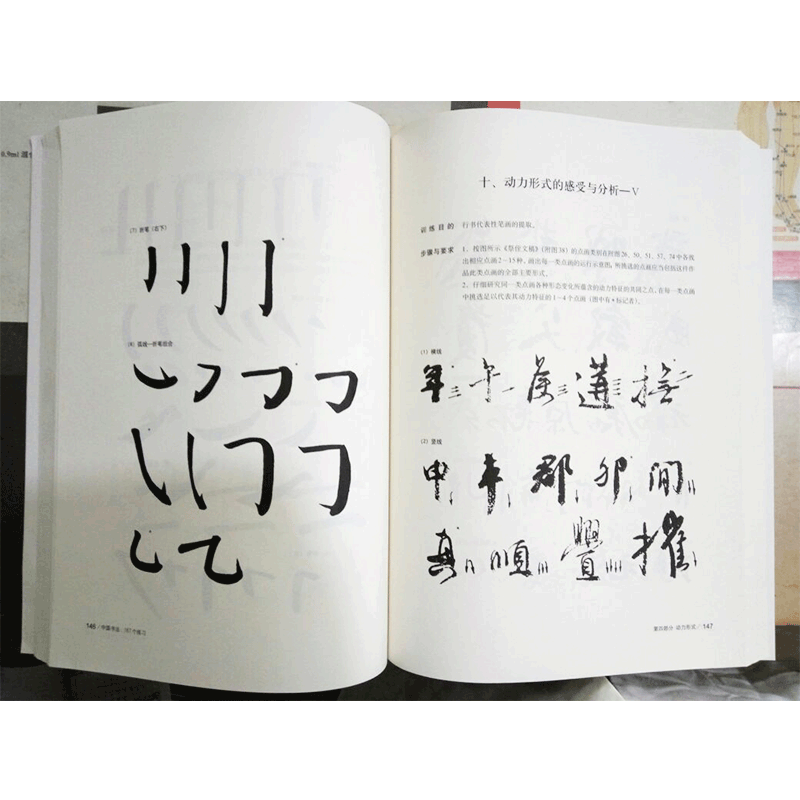 0.9ml 温
(7) 折笔（右下）
(8) 弧线—折笔组合
146 / 中国书法：167个练习
十、动力形式的感受与分析—V
训练目的 行书代表性笔画的提取。
步骤与要求 1、按图所示《祭侄文稿》（附图38）的点画类别在附图26、50、51、57、74中各找
出相应点画2～15种，画出每一类点画的运行示意图，所挑选的点画应当包括这件作
品此类点画的全部主要形式。
2、仔细研究同一类点画各种形态变化所蕴含的动力特征的共同之点，在每一类点画
中挑选足以代表其动力特征的1～4个点画（图中有*标记者）。
(1) 横线
年 午 侯 遘 抚
(2) 竖线
申 丰 郡 卯 间
真 順 舋 摧
第四部分 动力形式 / 147